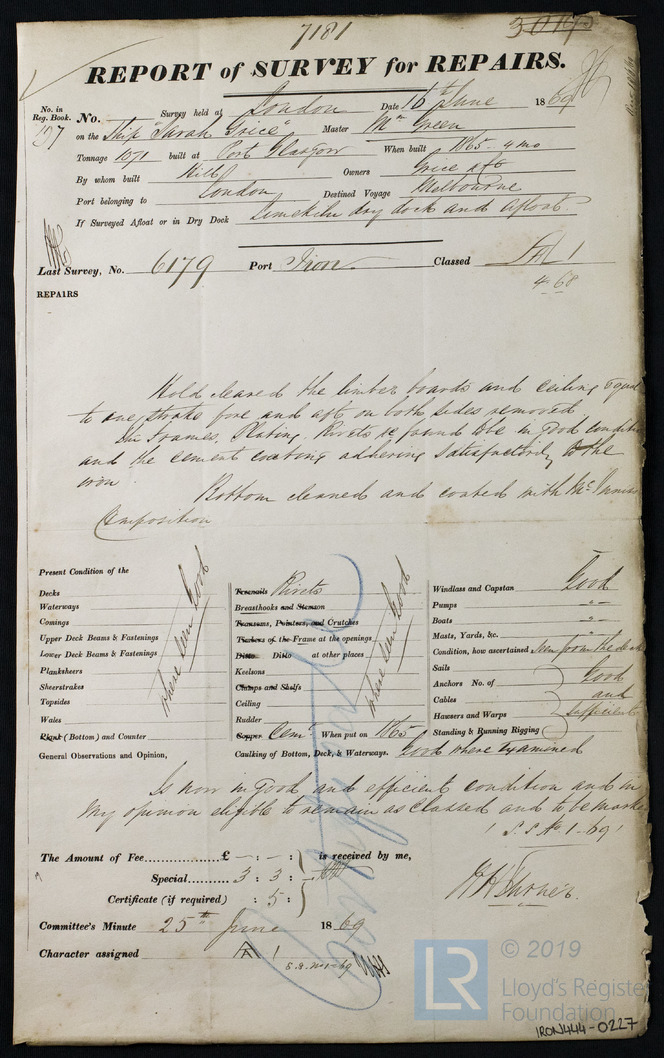 7181
REPORT of SURVEY for REPAIRS.
No. in Reg. Book. 197
No. Survey held at London Date 16th June 1869
on the Ship "Sarah Grice" Master Mr Green
Tonnage 1071 built at Port Glasgow When built 1865 - 4 mo
By whom built Owners Grice & Co
Port belonging to London Destined Voyage Melbourne
If Surveyed Afloat or in Dry Dock Limekiln dry dock and afloat.
Last Survey, No. 6179 Port Iron Classed A 1
4-68
REPAIRS
Hold cleared the limber boards and ceiling equal
to one strake fore and aft on both sides removed
The Frames, Plating, Rivets &c found to be in Good condition
and the cement coating adhering satisfactorily to the
iron
Bottom cleaned and coated with McInnes
Composition
Present Condition of the
Decks
Waterways
Comings
Upper Deck Beams & Fastenings
Lower Deck Beams & Fastenings
Planksheers
Sheerstrakes
Topsides
Wales
Plank (Bottom) and Counter
where seen Good
Treenails Rivets
Breasthooks and Stemson
Transoms, Pointers, and Crutches
Timbers of the Frame at the openings
Ditto Ditto at other places
Keelsons
Clamps and Shelfs
Ceiling
Rudder
Copper Cemt When put on 1865
where seen Good
Windlass and Capstan Good
Pumps -"-
Boats -"-
Masts, Yards, &c. "
Condition, how ascertained Seen from the deck
Sails
Anchors No. of
Cables
Hawsers and Warps
Standing & Running Rigging
Good and sufficient
General Observations and Opinion, Caulking of Bottom, Deck, & Waterways. Good where examined
Is now in Good and efficient condition and in
my opinion eligible to remain as Classed and to be marked
"S.S. No 1-69"
The Amount of Fee............ £ - : - : is received by me,
Special....... 3 : 3 :
Certificate (if required) : 5 :
Committee's Minute 25th June 1869
Character assigned A 1
S.S. No 1-69
© 2019
LR
Lloyd's Register
Foundation
IRON444-0227